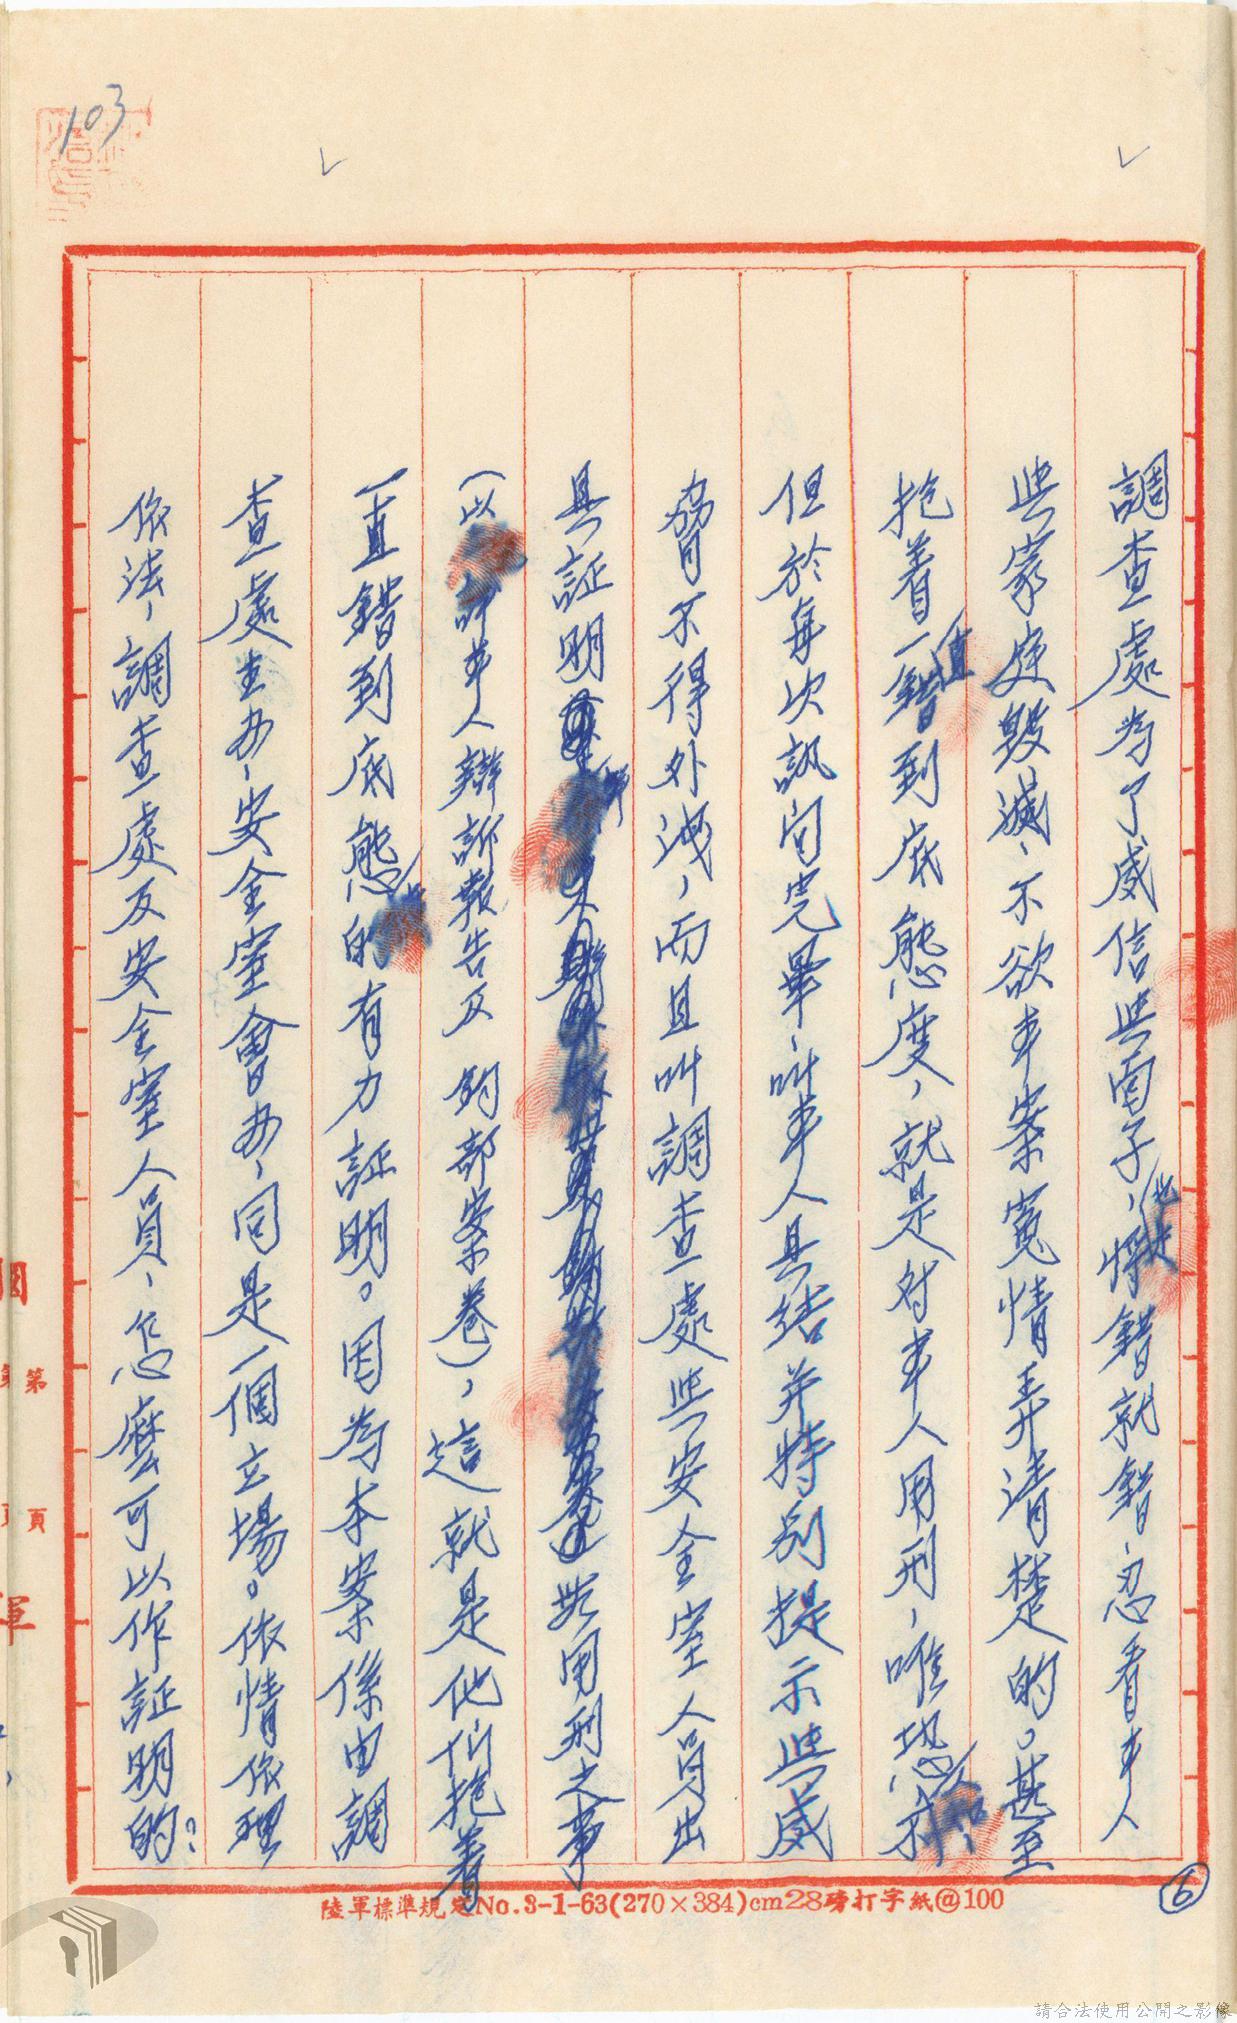 103
調查處為了威信與面子,也是將錯就錯,忍看本人
與家庭毀滅,不欲本案冤情弄清楚的。甚至
抱着一直錯到底態度,就是对本人用刑,唯恐
但於每次訊问完畢,叫本人具结并特别提示與威
脅不得外洩,而且叫調查處與安全室人員出
具証明 無用刑之事
(以 訴本人辯訴報告及 鈞部案卷),這就是他们抱着
一直錯到底態 的有力証明。因為本案係由調
查處主办,安全室會办,同是一個立場。依情依理
依法,調查處及安全室人員,怎麼可以作証明的?
6
陸軍標準規定No.3-1-63(270×384)cm28磅打字紙@100
第 頁
請合法使用公開之影像